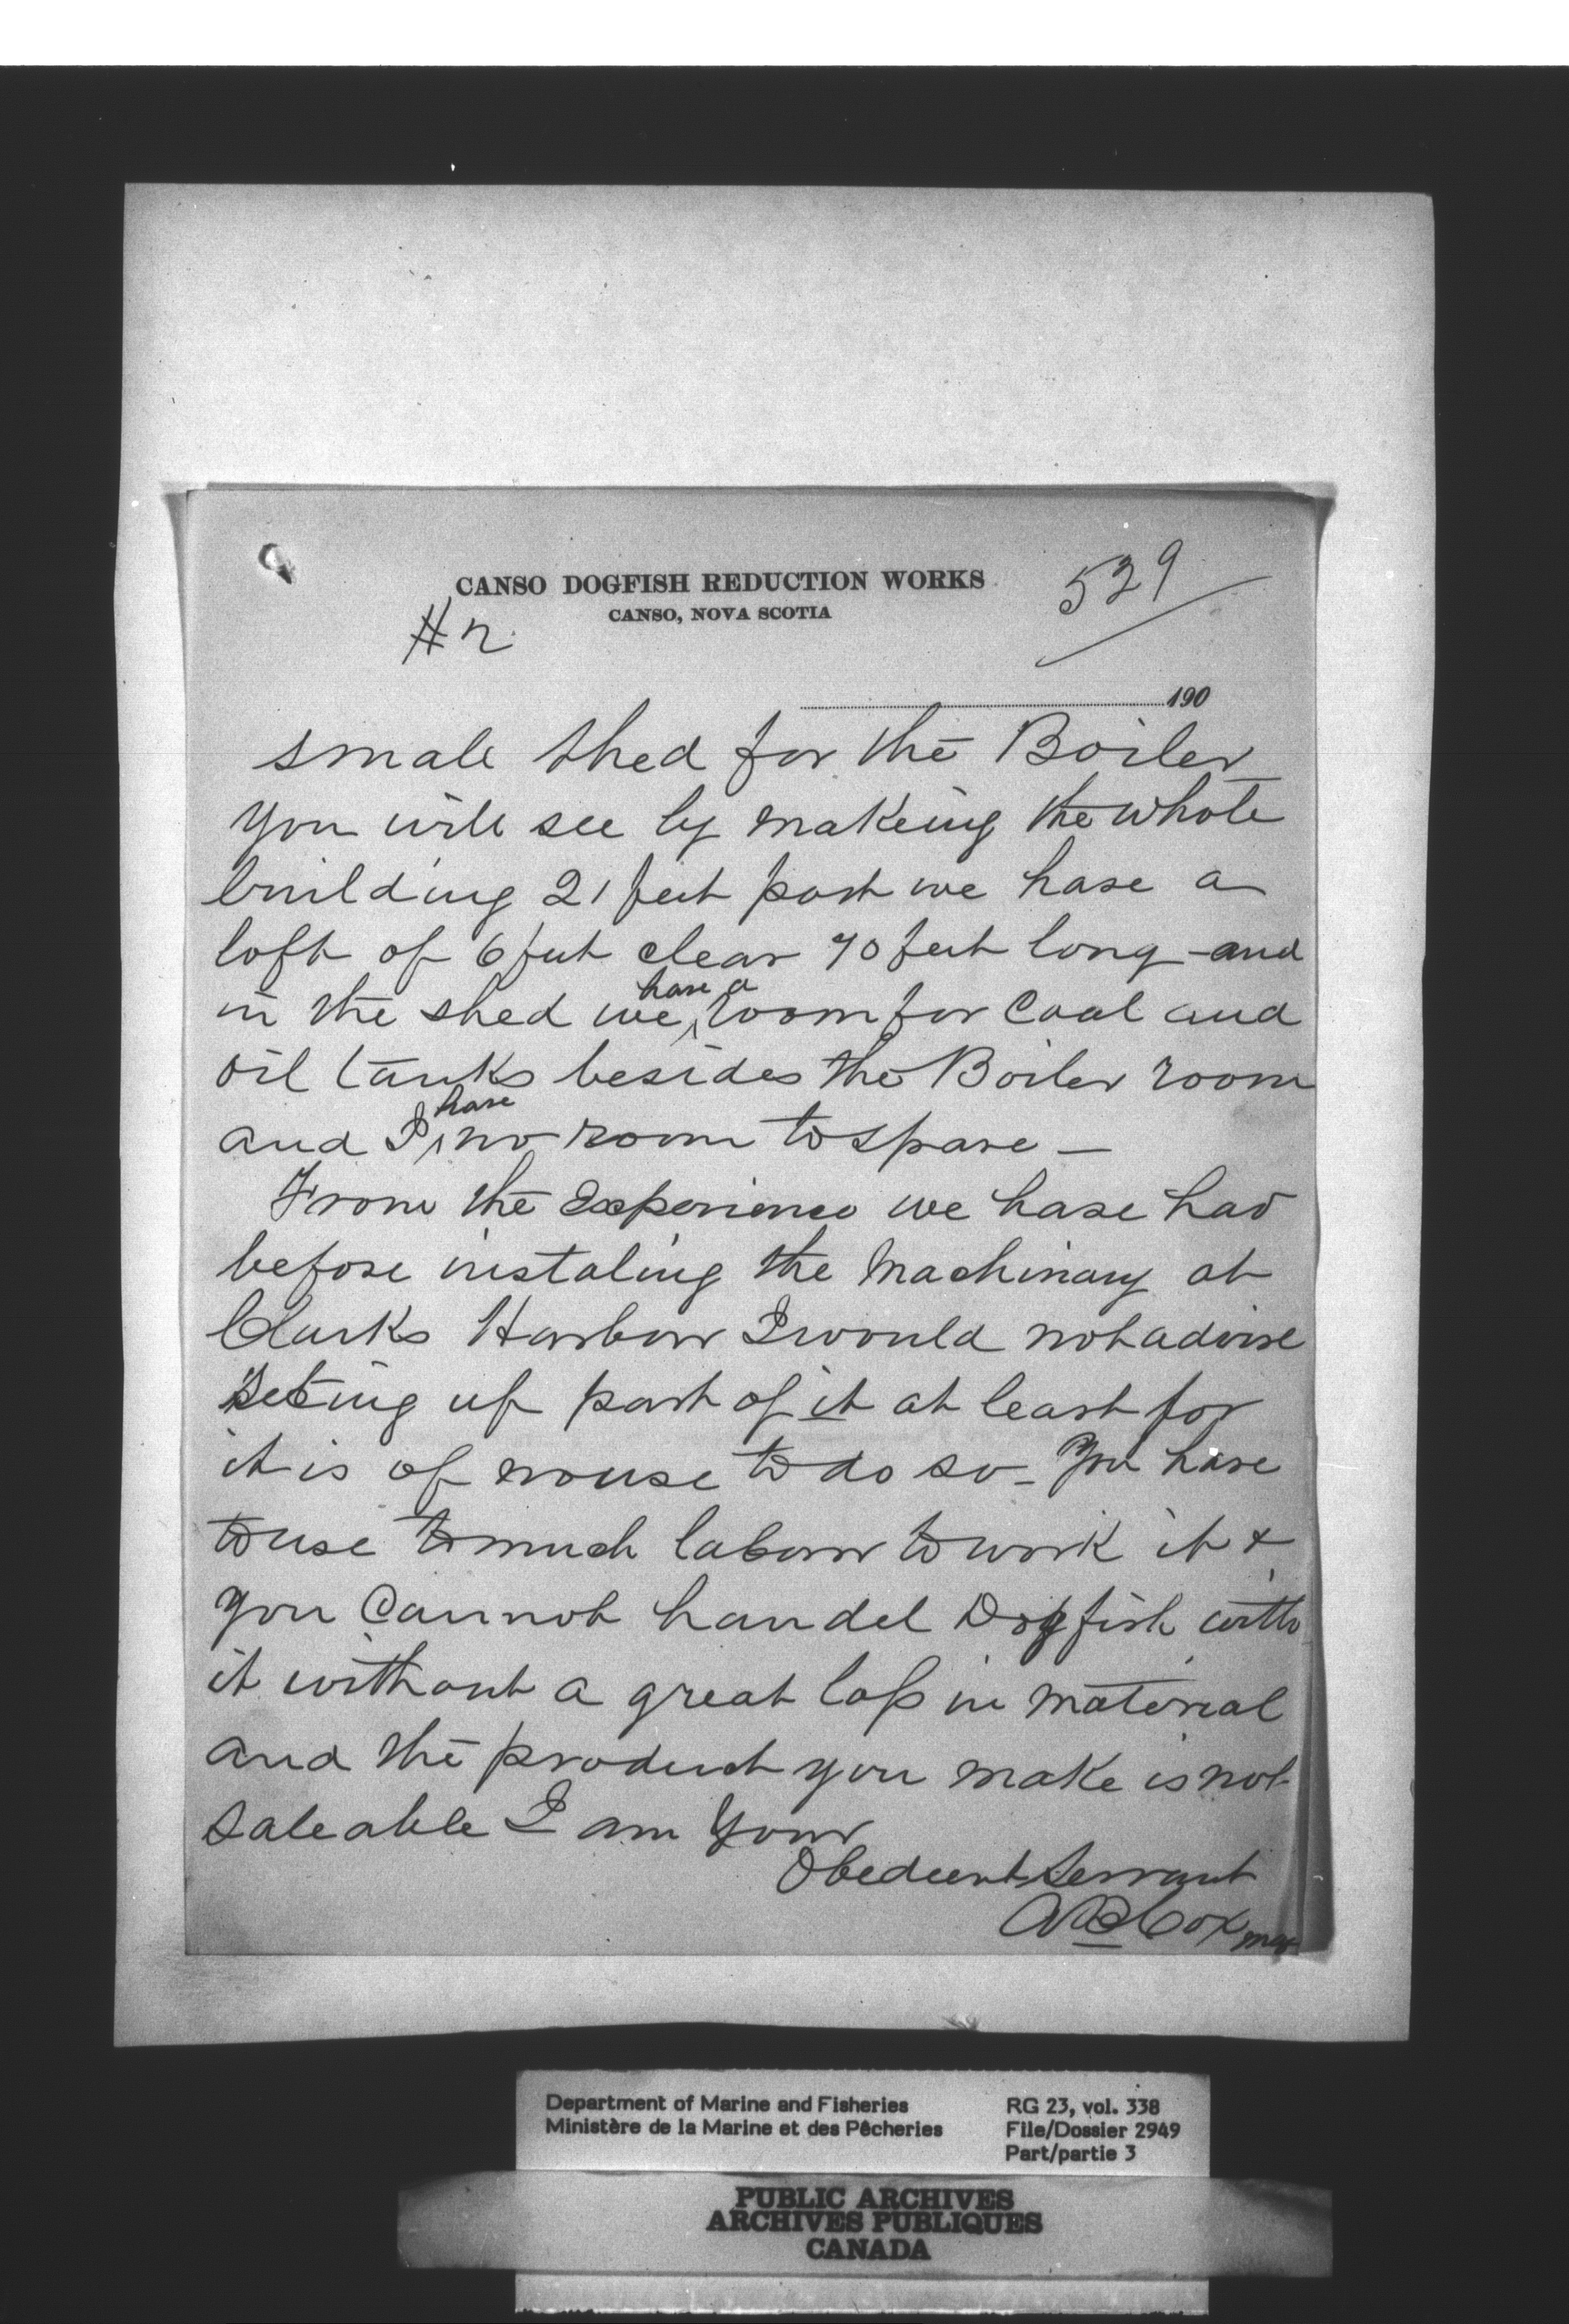 CANSO DOGFISH REDUCTION WORKS
CANSO, NOVA SCOTIA
529
#2
190
small shed for the Boiler
You will see by makeing the whole
building 21 feet post we have a
loft of 6 feet clear 70 feet long - and
in the shed we have a room for Coal and
oil tanks besides the Boiler room
and I have no room to spare —
From the Experience we have had
before instaling the Machinary at
Clarks Harbour I would not advise
Seting up part of it at least for
it is of no use to do so - You have
to use to much labour to work it &
you Cannot handel Dogfish with
it without a great loss in material
and the product you make is not
saleable I am Your
Obedient Servant
Cox mgr
Department of Marine and Fisheries
Ministère de la Marine et des Pêcheries
RG 23, vol. 338
File/Dossier 2949
Part/partie 3
PUBLIC ARCHIVES
ARCHIVES PUBLIQUES
CANADA